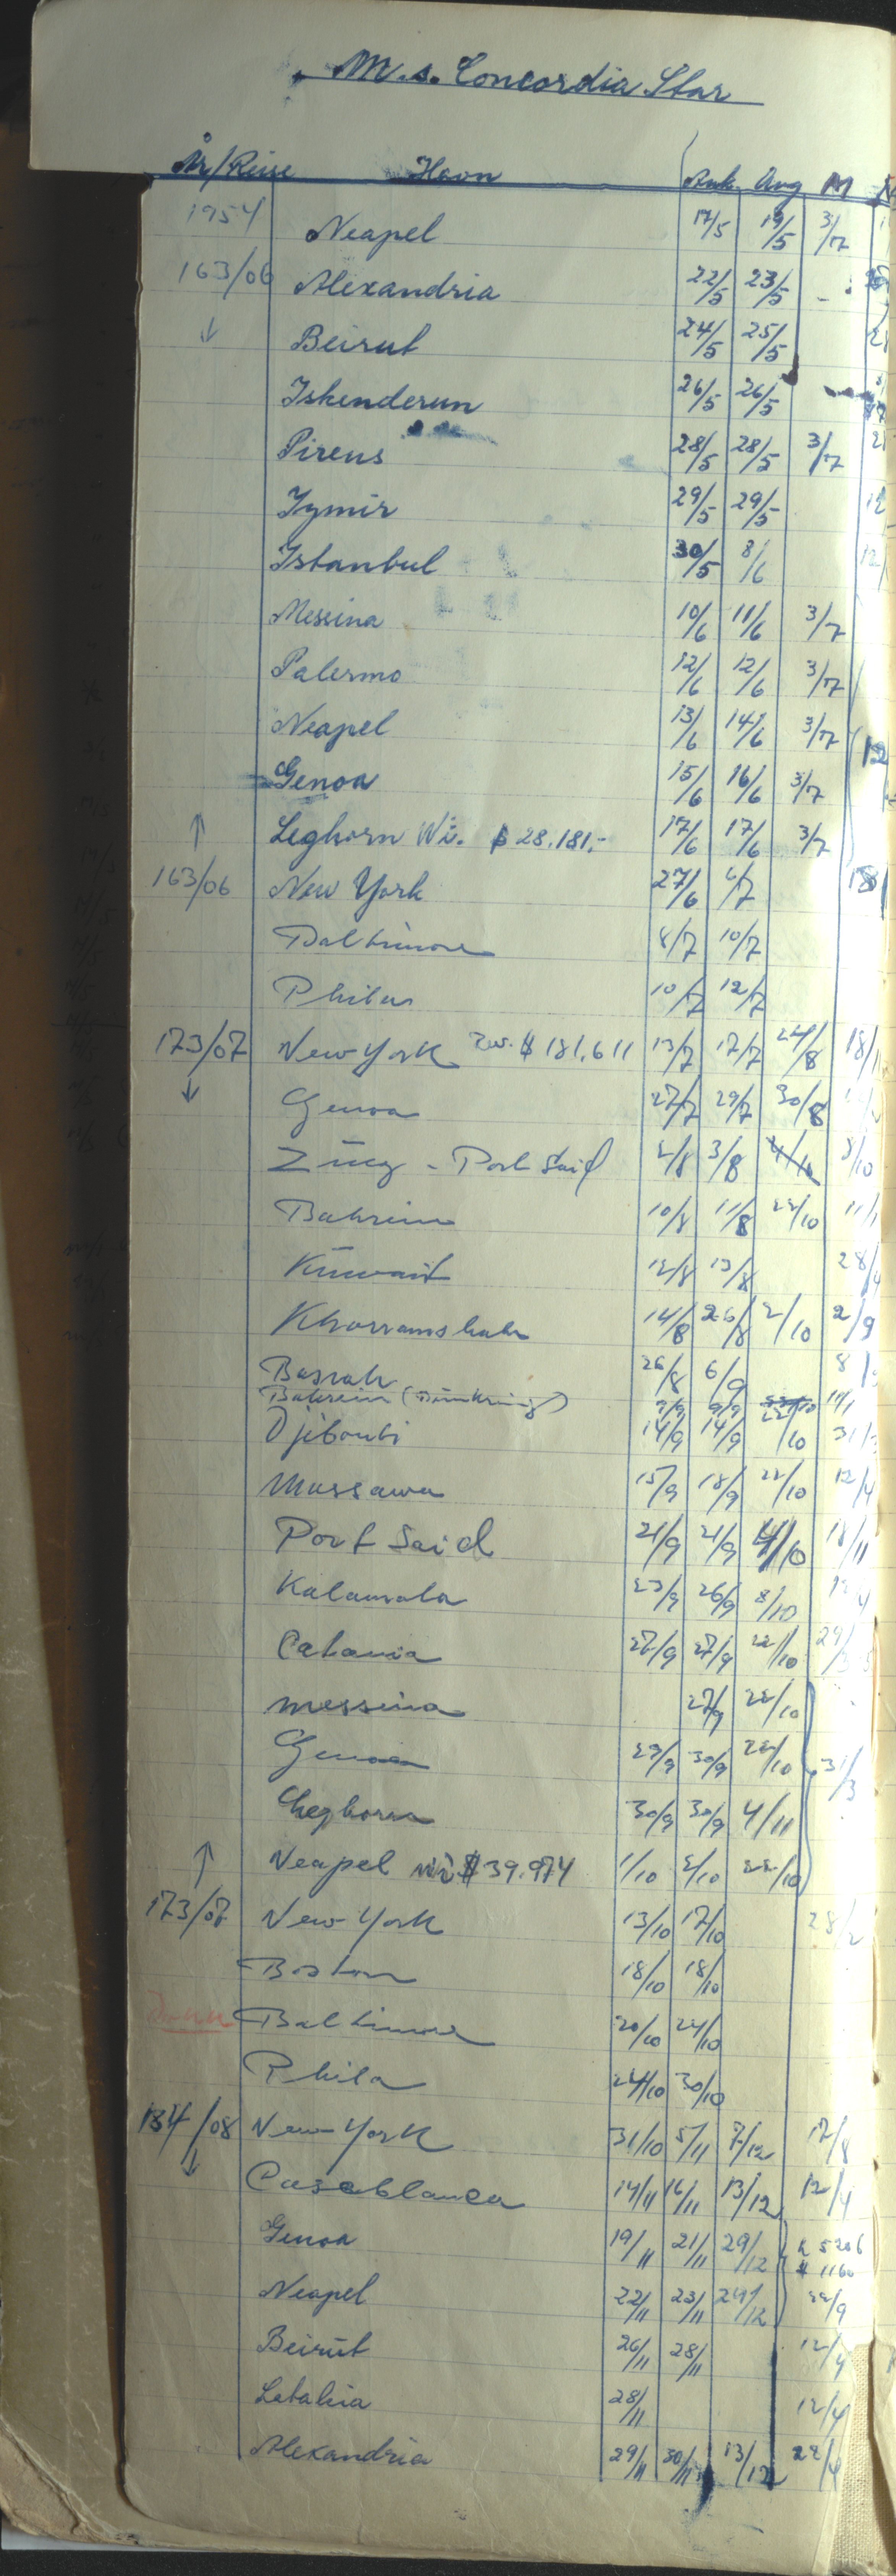 M.s. Concordia Star
År/Reise Havn Ank. Avg M
1954 Neapel 17/5 19/5 3/7
163/06 Alexandria 22/5 23/5 -
↓ Beirut 24/5 25/5
Iskenderun 26/5 26/5
Pireus 28/5 28/5 3/7
Izmir 29/5 29/5
Istanbul 30/5 8/6
Messina 10/6 11/6 3/7
Palermo 12/6 12/6 3/7
Neapel 13/6 14/6 3/7
Genoa 15/6 16/6 3/7
↑ Leghorn Wi. $ 28.181.- 17/6 17/6 3/7
163/06 New York 27/6 6/7
Baltimore 8/7 10/7
Phila 10/7 12/7
173/07 New York $ 181.611 13/7 17/7 24/8
↓ Genoa 27/7 29/7 30/8
Zuez - Port Said 2/8 3/8 8/10
Bahrein 10/8 11/8 22/10
Kuwait 12/8 13/8 28/4
Khorramshahr 14/8 26/8 2/10 2/9
Basrah 26/8 6/9
Bahrein (Bunkring) 9/9
Djibouti 14/9 14/9 22/10
Massawa 15/9 18/9 22/10 12/4
Port Said 21/9 21/9 4/10 18/11
Kalamata 23/9 26/9 8/10
Catania 27/9 27/9 22/10
Messina 27/9 22/10
Genoa 29/9 30/9 22/10 31/3
Leghorn 30/9 30/9 4/11
↑ Neapel wi $ 39.974 1/10 2/10 22/10
173/07 New York 13/10 17/10 28/2
Boston 18/10 18/10
Baltimore 20/10 24/10
Phila 24/10 30/10
184/08 New York 31/10 5/11 7/12 17/8
↓ Casablanca 14/11 16/11 13/12 12/4
Genoa 19/11 21/11 29/12
$ 1160
Neapel 22/11 23/11 29/12 22/9
Beirut 26/11 28/11 12/4
Latakia 28/11 12/4
Alexandria 29/11 30/11 13/12 22/4